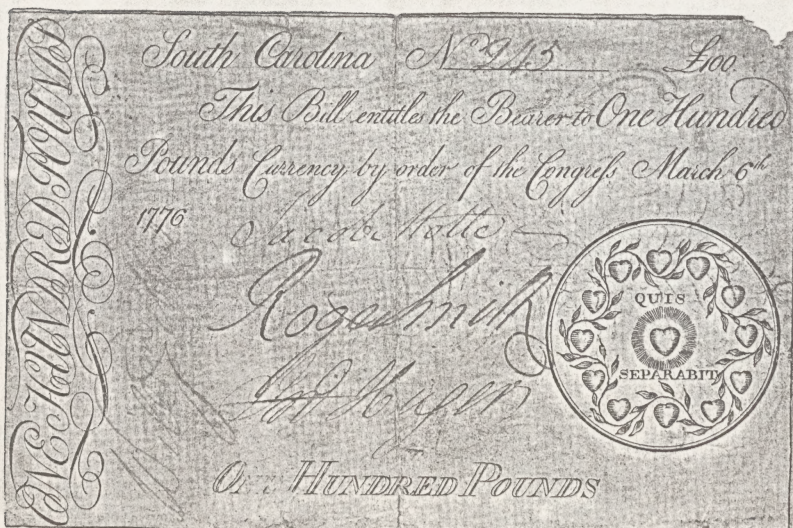 South Carolina No 245 £100
This Bill entitles the Bearer to One Hundred
Pounds Currency by order of the Congreſs March 6th
1776
Jacob Motte
Roger Smith
Huger
ONE HUNDRED POUNDS
QUIS
SEPARABIT
ONE HUNDRED POUNDS